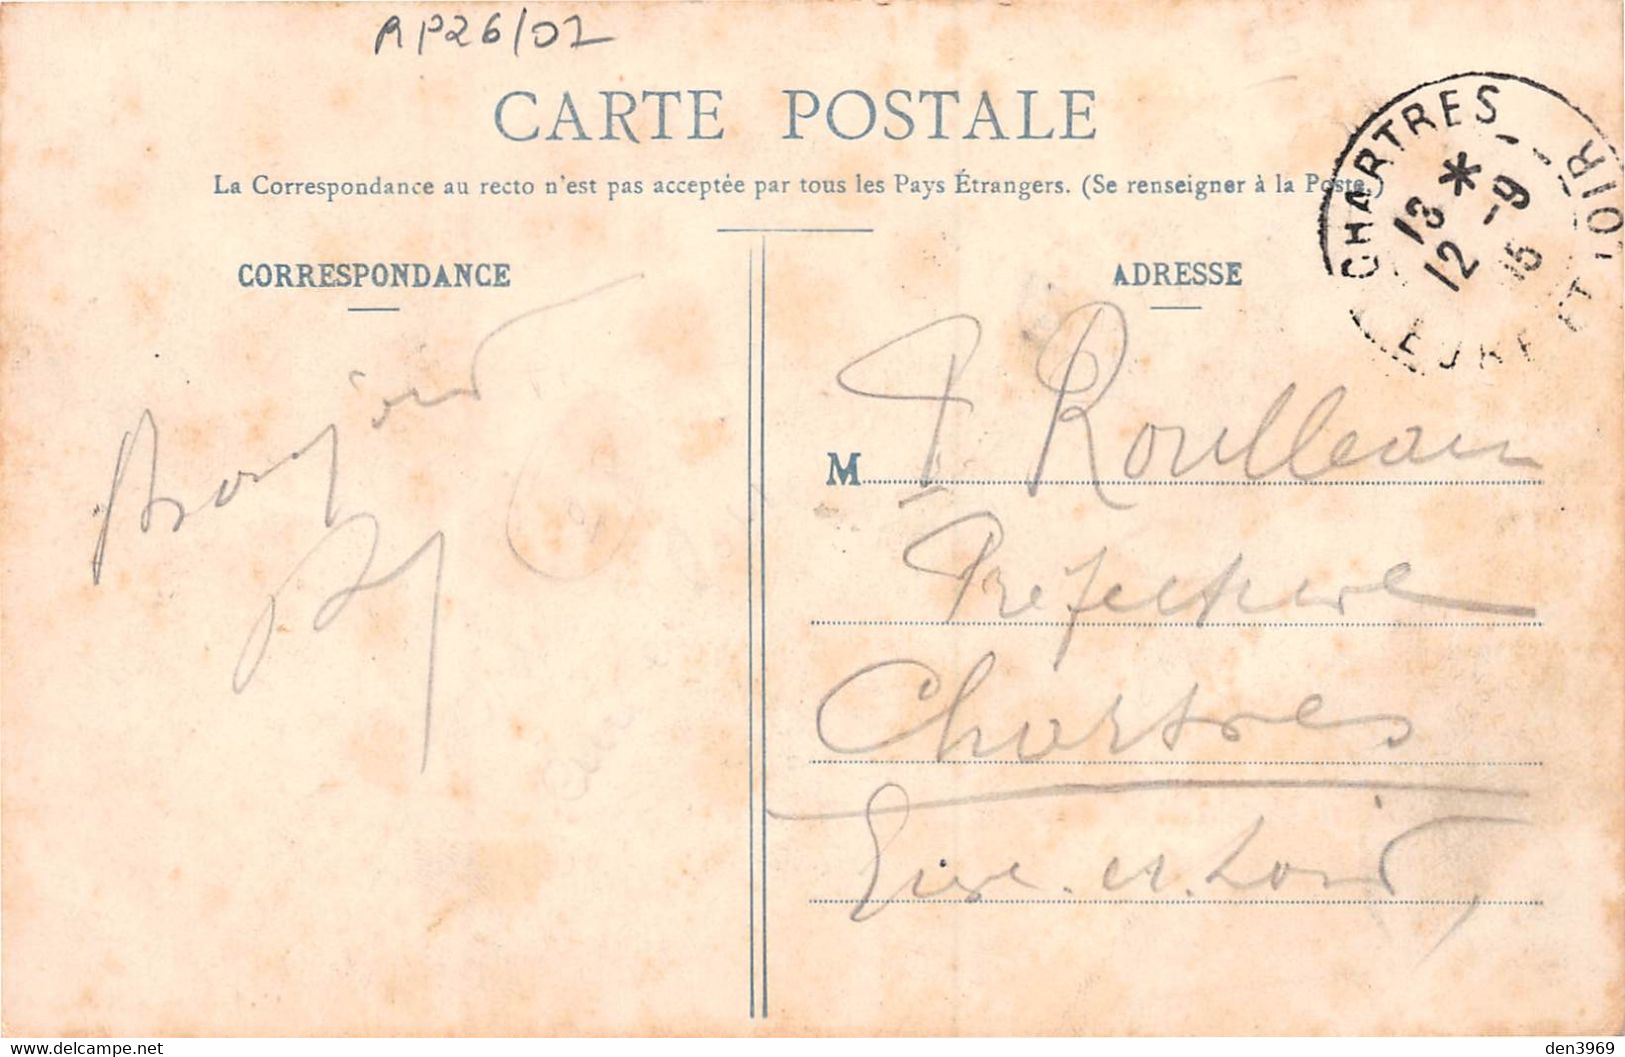 RP26/01
CARTE POSTALE
La Correspondance au recto n'est pas acceptée par tous les Pays Étrangers. (Se renseigner à la Poste.)
CORRESPONDANCE
ADRESSE
CHARTRES
13 *
12 -9
EURE ET LOIR
Bonjour
M
Roulleau
Préfecture
Chartres
Eure-et-Loir,
den3969